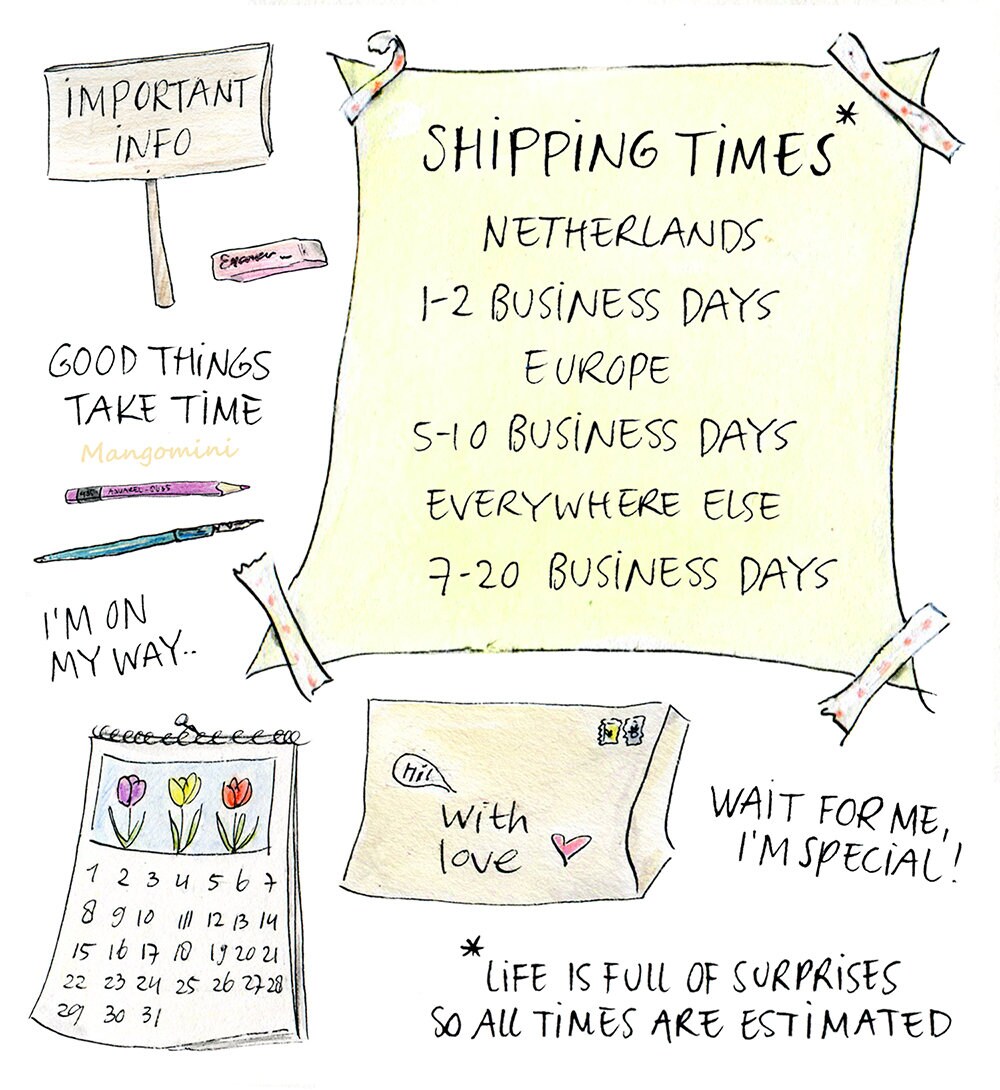 IMPORTANT
INFO
SHIPPING TIMES*
NETHERLANDS
1-2 BUSINESS DAYS
EUROPE
5-10 BUSINESS DAYS
EVERYWHERE ELSE
7-20 BUSINESS DAYS
GOOD THINGS
TAKE TIME
Mangomini
I'M ON
MY WAY..
1 2 3 4 5 6 7
8 9 10 11 12 13 14
15 16 17 18 19 20 21
22 23 24 25 26 27 28
29 30 31
Hi!
With
love
WAIT FOR ME,
I'M SPECIAL!
*LIFE IS FULL OF SURPRISES
SO ALL TIMES ARE ESTIMATED